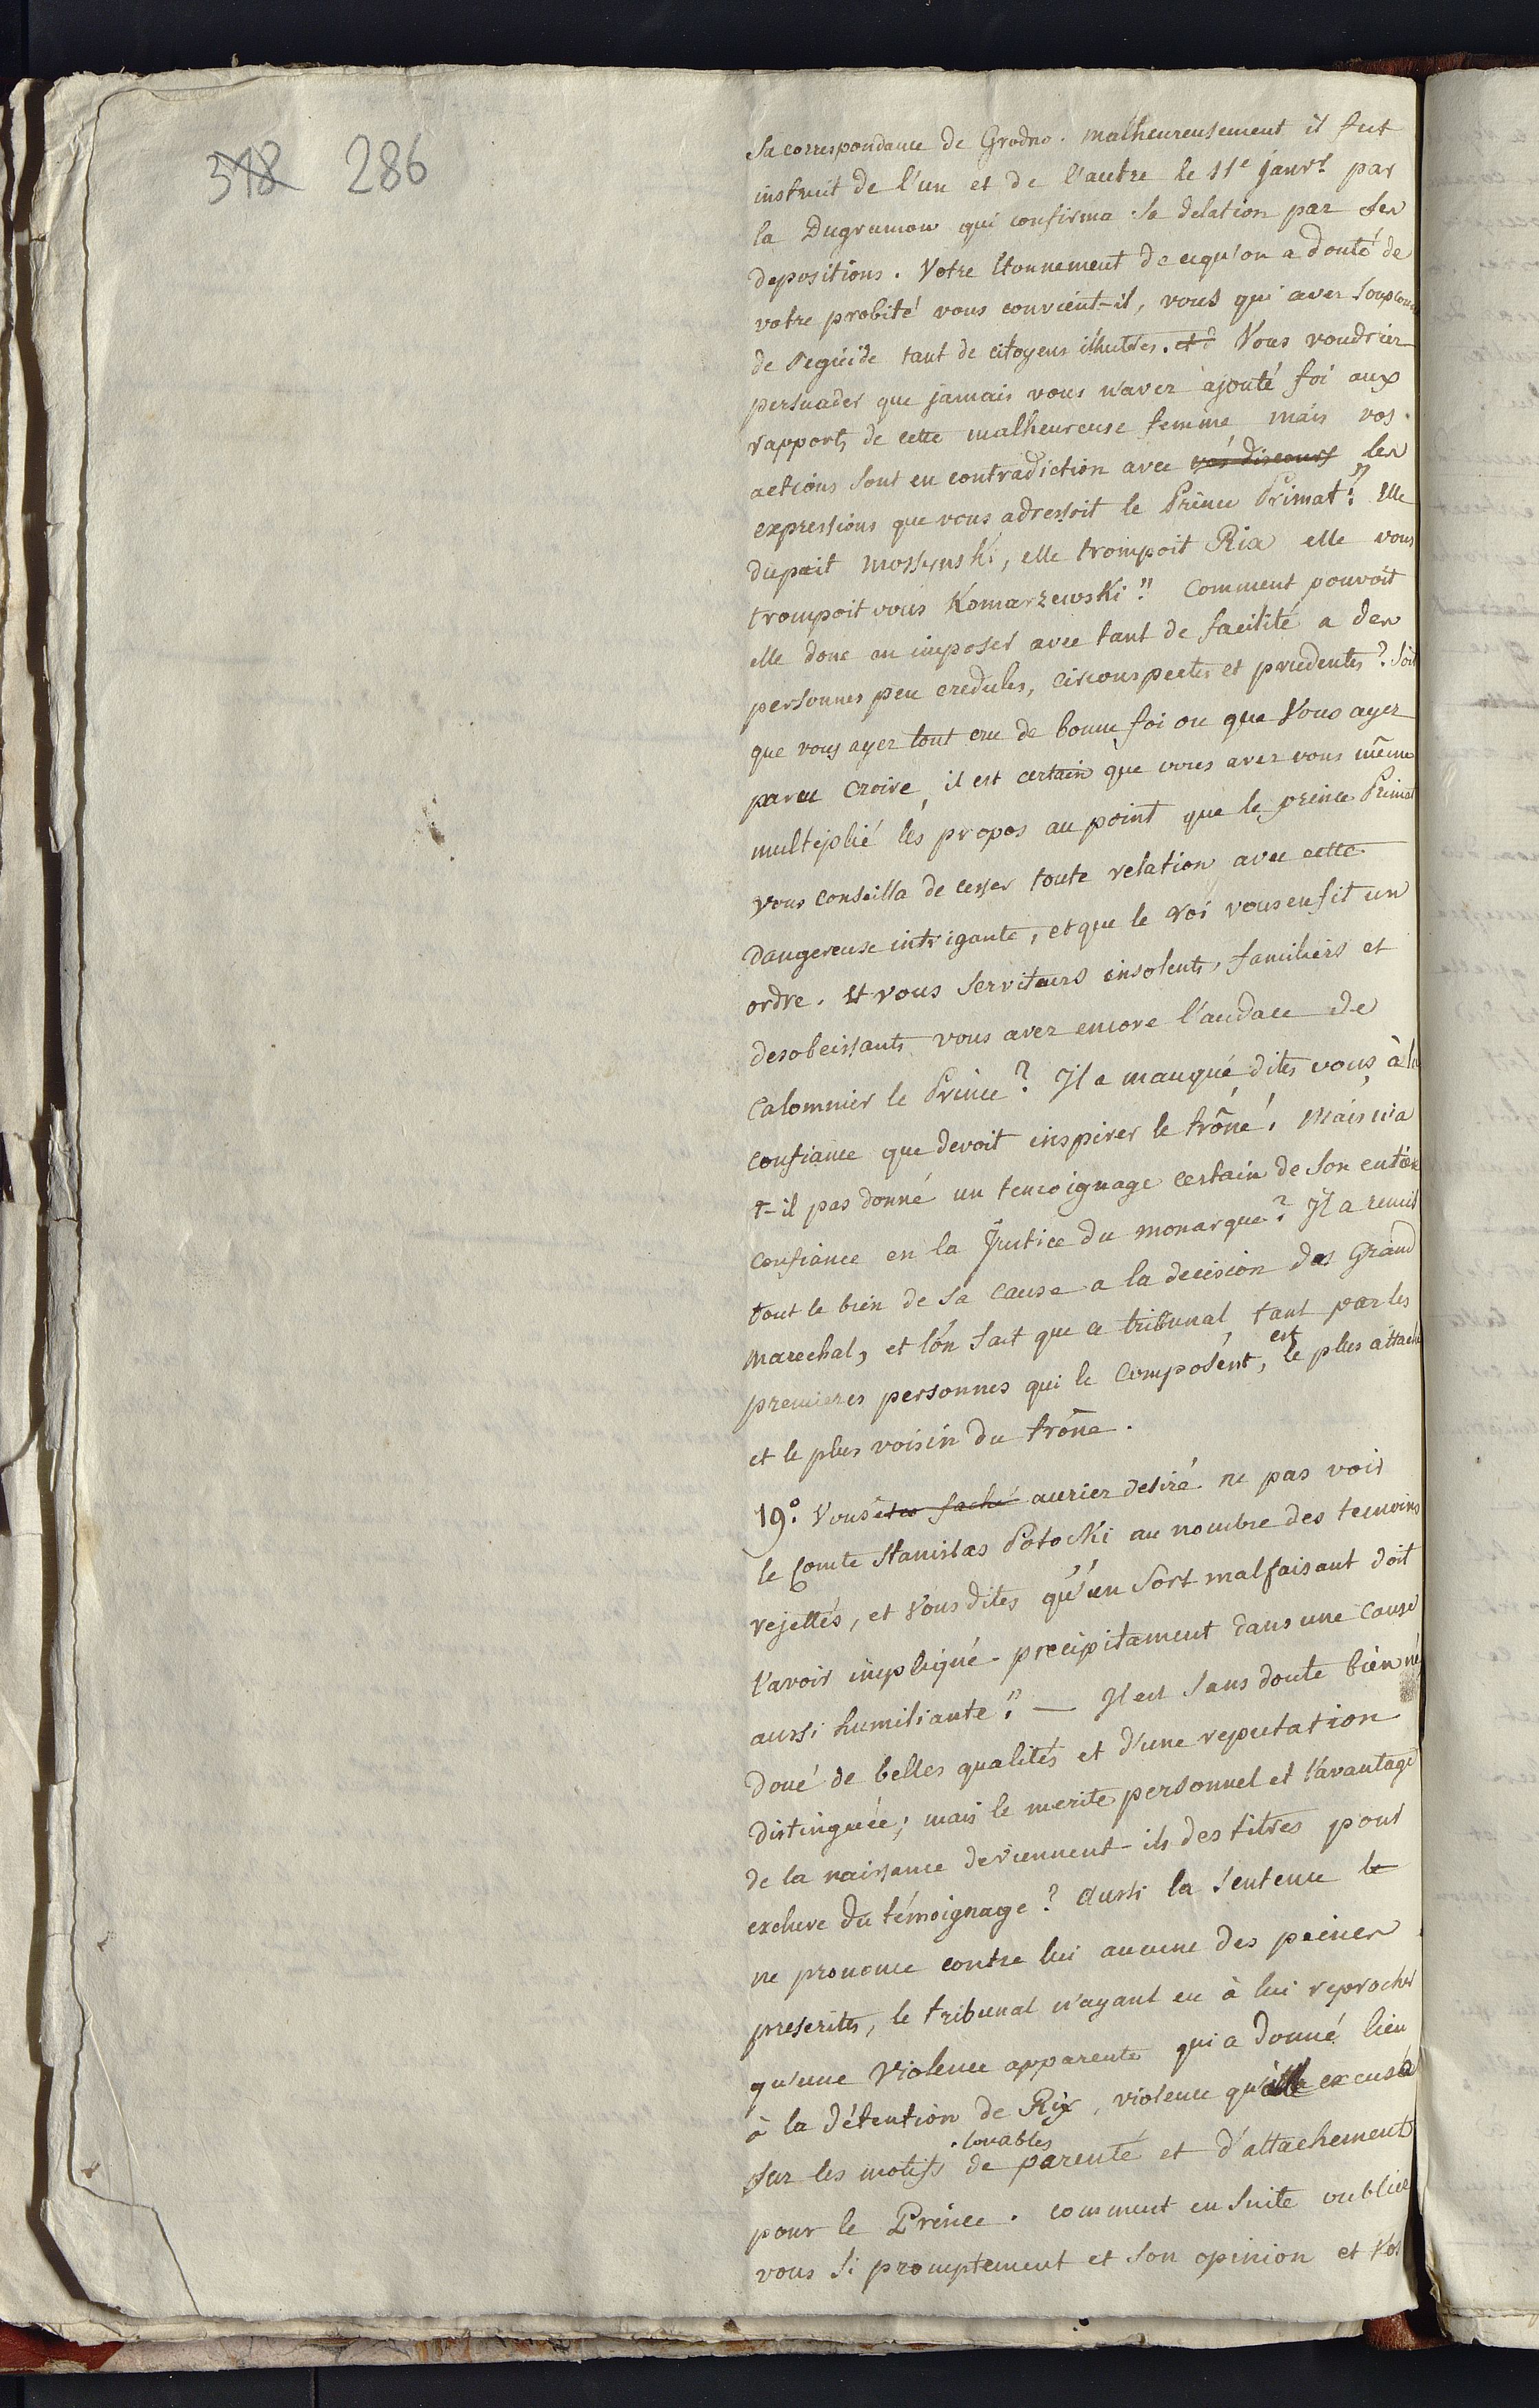 318 286
Sa correspondance de Grodno. malheureusement il fut
instruit de l'un et de l'autre le 11e janvr par
la Dugrumow qui confirma sa delation par ses
depositions. Votre Etonnement de cequ'on a douté de
votre probité vous convient-il, vous qui avez soupconn
de regicide tant de citoyens illustres. et Vous voudriez
persuader que jamais vous n'avez ajouté foi aux
rapports de cette malheureuse femme mais vos
actions sont en contradiction avec vos discours les
expressions que vous adressoit le Prince Primat: "Elle
dupait mosszynski, elle trompoit Rix elle vous
trompoit vous Komarzewski" Comment pouvoit
elle donc en imposer avec tant de facilité a des
personnes peu credules, circonspectes et prudentes? Soit
que vous ayez tout cru de bonne foi ou que Vous ayez
paru croire, il est certain que vous avez vous même
multiplié les propos au point que le prince Primat
vous conseilla de cesser toute relation avec cette
dangereuse intrigante, et que le roi vous en fit un
ordre. Et vous serviteurs insolents, familiers et
desobeissants vous avez encore l'audace de
calomnier le Prince? Il a manqué dites vous à la
confiance que devoit inspirer le trône! Mais n'a
t-il pas donné un temoignage certain de son entière
confiance en la Justice du monarque? Il a remis
tout le bien de sa cause a la decision des Grand
marechal, et l'on sait que ce tribunal tant par les
premieres personnes qui le composent, est le plus attach
et le plus voisin du trône.
19.° Vous êtes faché auriez desiré ne pas voir
le Comte Stanislas Potocki au nombre des temoins
rejettés, et vous dites "qu'un sort malfaisant doit
l'avoir impliqué precipitament dans une cause
aussi humiliante". — Il est sans doute bien né
doué de belles qualités et d'une reputation
distinguée; mais le merite personnel et l'avantage
de la naissance deviennent-ils des titres pour
exclure du témoignage? Aussi la sentence le
ne prononce contre lui aucune des peines
prescrites, le tribunal n'ayant eu à lui reprocher
qu'une violence apparente qui a donné lieu
à la détention de Rix, violence qu'elle excusa
sur les motifs louables de parenté et d'attachement
pour le Prince. comment ensuite oubliez
vous si promptement et son opinion et vos